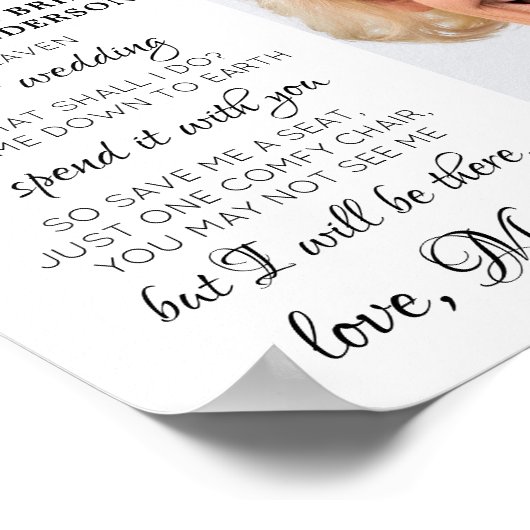 BRI
DERSON
EAVEN
wedding
HAT SHALL I DO?
ME DOWN TO EARTH
spend it with you
SO SAVE ME A SEAT,
JUST ONE COMFY CHAIR,
YOU MAY NOT SEE ME
but I will be there
love, M